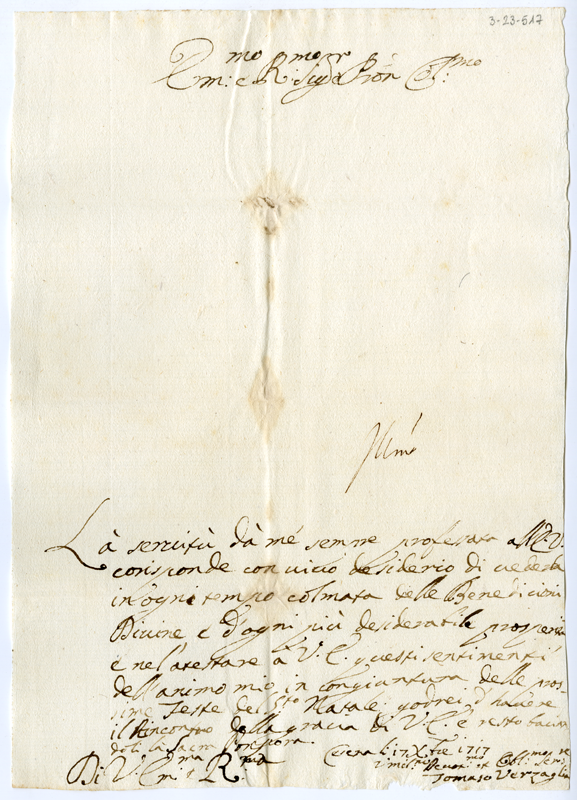 3-23-517
Em:mo e R:mo Sig:r e Pron Col:mo
Illmo
Là servitù dà mé sempre professata all'E.V.
corisponde con vivo desiderio di vederla
in ogni tempo colmata delle Benedicioni
Divine e d'ogni più desiderabile prosperità
e nel'atestare à V.E. questi sentimenti
dell'animo mio in congiuntura delle pros-
sime Feste del S:to Natale: godrei d'havere
il Rincontro della gracia di V.E. e resto bacian
doli la Sacra Porpora.
Di V. Em:ma e R:ma
Cesena li 17 Xbre 1717
Umil:mo Devot:mo et Obli:mo Ser:re
Tomaso Verzaglia